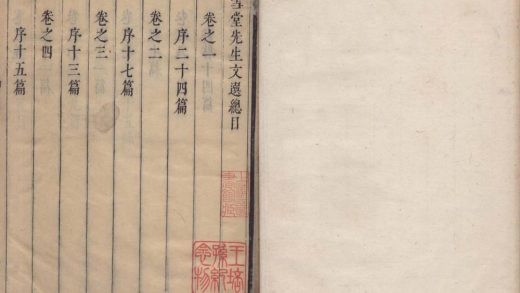 雪堂先生文選總目
卷之一
序二十四篇
卷之二
序十七篇
卷之三
序十三篇
卷之四
序十五篇
王培孫紀念物